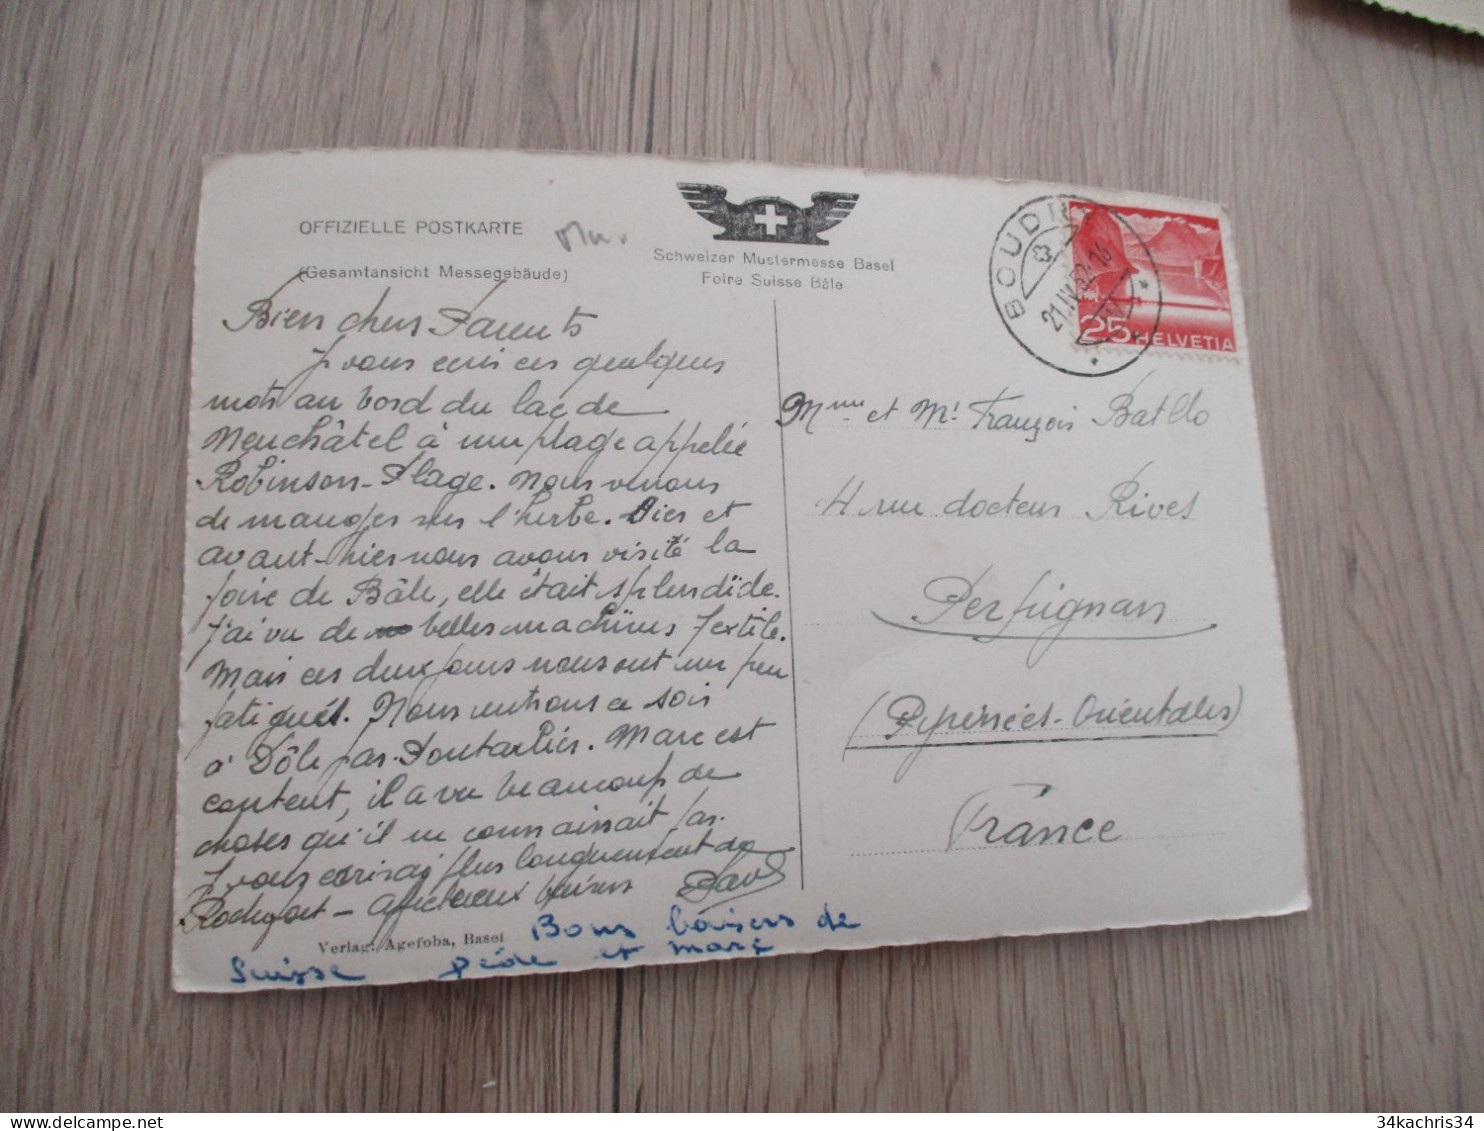 OFFIZIELLE POSTKARTE
(Gesamtansicht Messegebäude)
Schweizer Mustermesse Basel
Foire Suisse Bâle
BOUDRY
21.IV.52-16
25 HELVETIA
Bien chers Parents
Je vous écris ces quelques
mots au bord du lac de
Neuchâtel à une plage appelée
Robinson-Plage. Nous venons
de manger sur l'herbe. Hier et
avant-hier nous avons visité la
foire de Bâle, elle était splendide.
J'ai vu de belles machines textile.
Mais ces deux jours nous ont un peu
fatigués. Nous rentrons ce soir
à Dôle par Pontarlier. Marc est
content, il a vu beaucoup de
choses qu'il ne connaissait pas.
Je vous écrirai plus longuement de
Rochefort - Affectueux baisers
Verlag: Agefoba, Basel
Bons baisers de
Suisse et marc
Mme et Mr François Batllo
4 rue docteur Rives
Perpignan
(Pyrénées-Orientales)
France
34kachris34